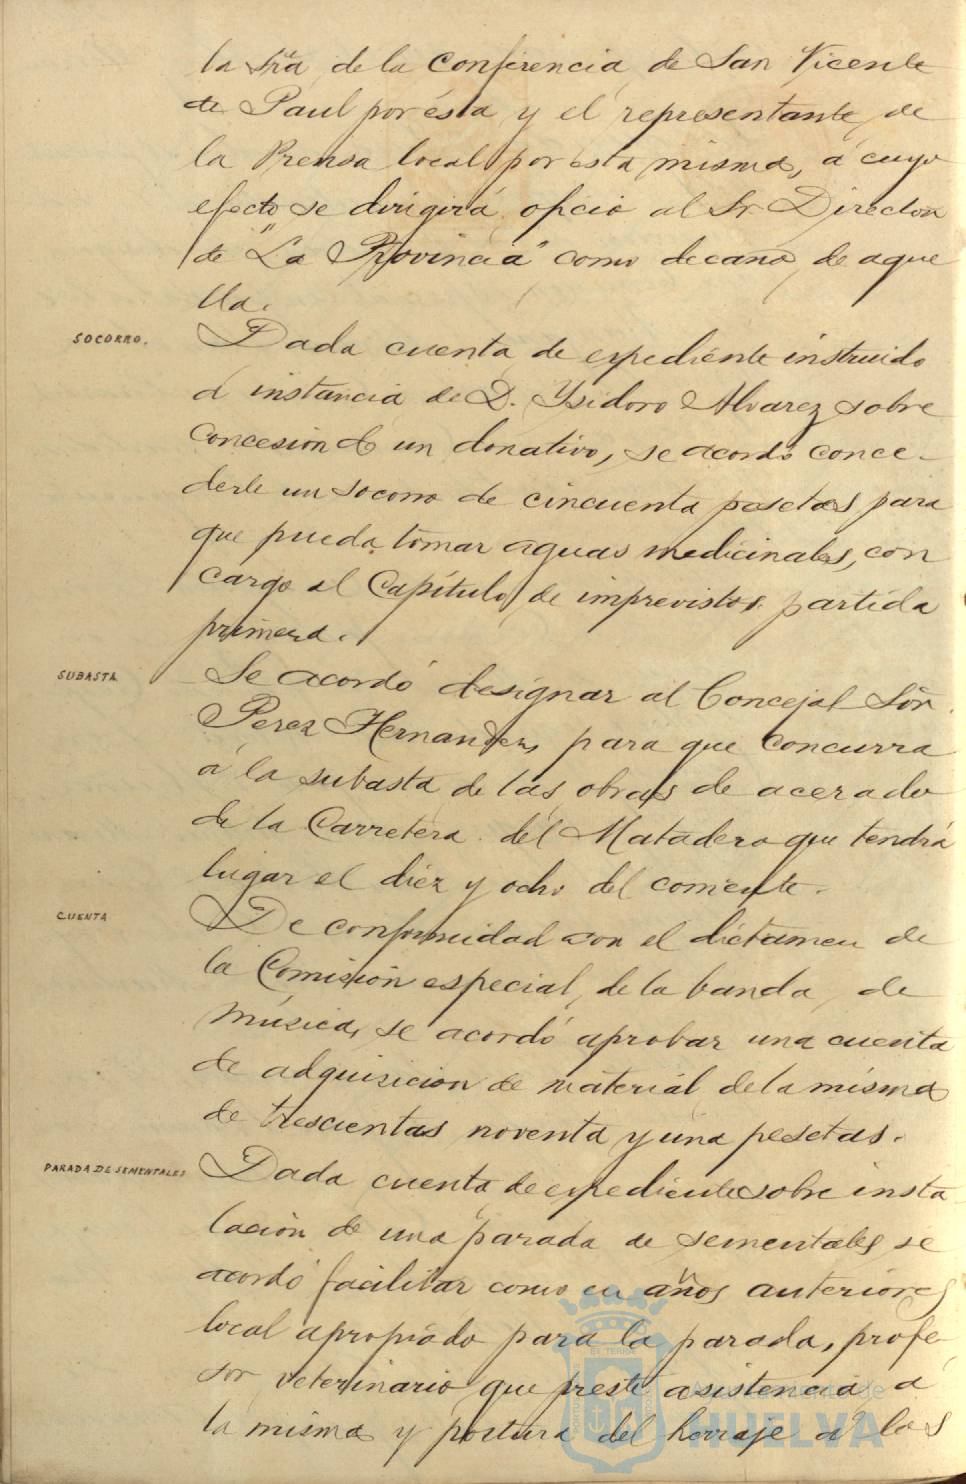 la Sría de la Conferencia de San Vicente
de Paul por ésta y el representante de
la Prensa local por esta misma, á cuyo
efecto se dirigirá oficio al Sr Director
de "La Provincia" como decano de aque
lla.
SOCORRO.
Dada cuenta de expediente instruido
á instancia de D. Ysidoro Alvarez sobre
concesión de un donativo, se acordó conce-
derle un socorro de cincuenta pesetas para
que pueda tomar aguas medicinales, con
cargo al Capítulo de imprevistos partida
primera.
SUBASTA
Se acordó designar al Concejal Sór.
Perez Hernandez para que concurra
á la subasta de las obras de acerado
de la Carretera del Matadero que tendrá
lugar el diez y ocho del corriente.
CUENTA
De conformidad con el dictamen de
la Comisión especial de la banda de
música, se acordó aprobar una cuenta
de adquisicion de material de la misma
de trescientas noventa y una pesetas.
PARADA DE SEMENTALES
Dada cuenta de expediente sobre insta
lación de una parada de sementales se
acordó facilitar como en años anteriores
local apropiado para la parada, profe
sor veterinario que preste asistencia a
la misma y postura del herraje á los
Ayuntamiento de
HUELVA